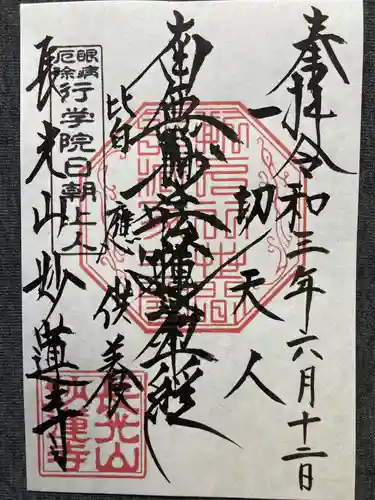 奉拝 令和三年六月十二日
一切天人
南無妙法蓮華経
皆應供養
眼病
厄除
行学院日朝上人
長光山妙蓮寺
長光山
妙蓮寺